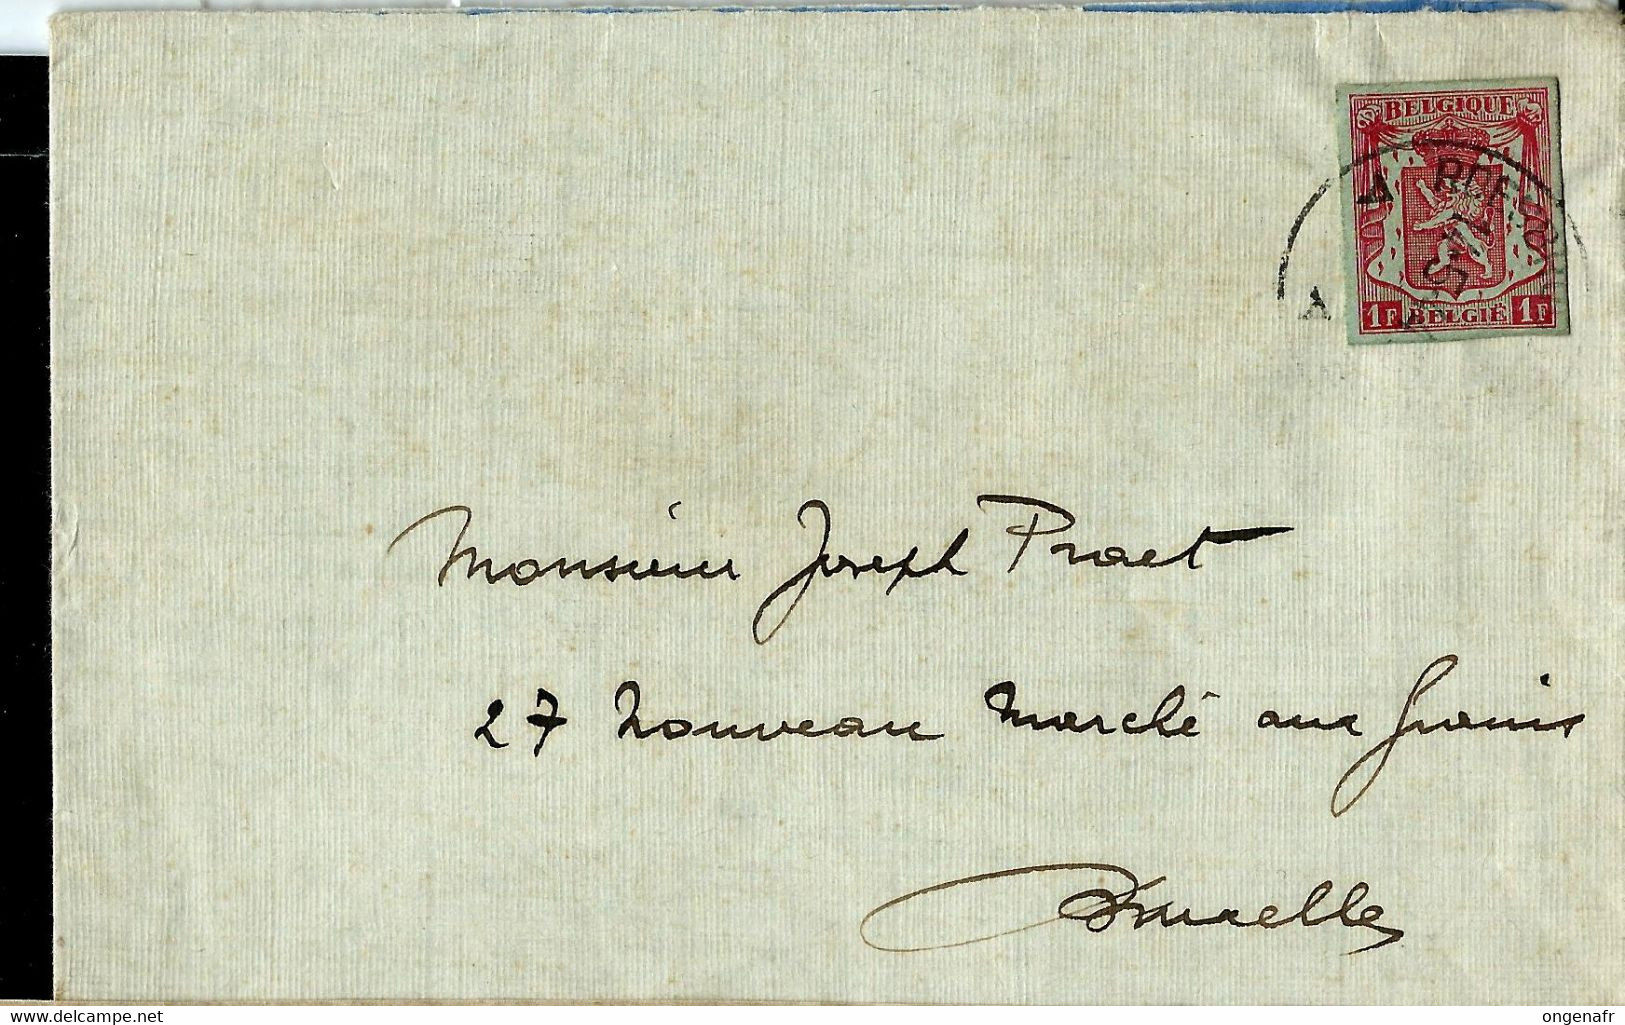 BELGIQUE
1F BELGIË 1F
Monsieur Joseph Praet
27 Nouveau Marché aux Grains
Bruxelles
www.delcampe.net
ongenafr